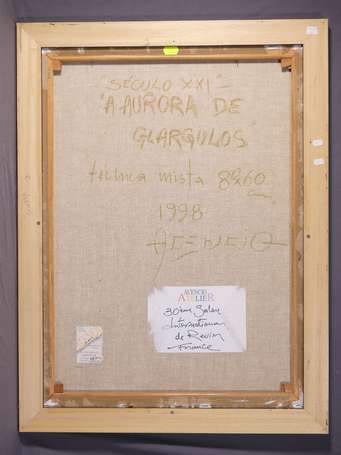 "SÉCULO XXI" -
"A AURORA DE
GLARGULOS"
técnica mista
1998
ATELIER
30ème Salon
International
de Revin
France